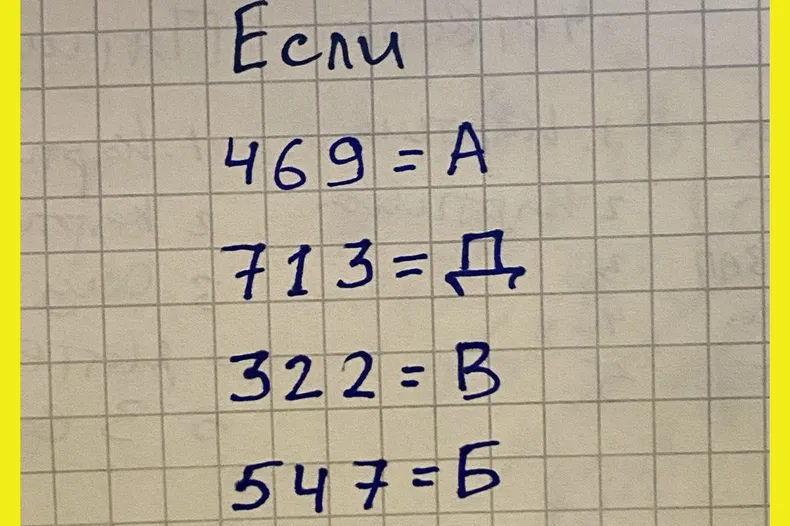 Если
469 = А
713 = Д
322 = В
547 = Б